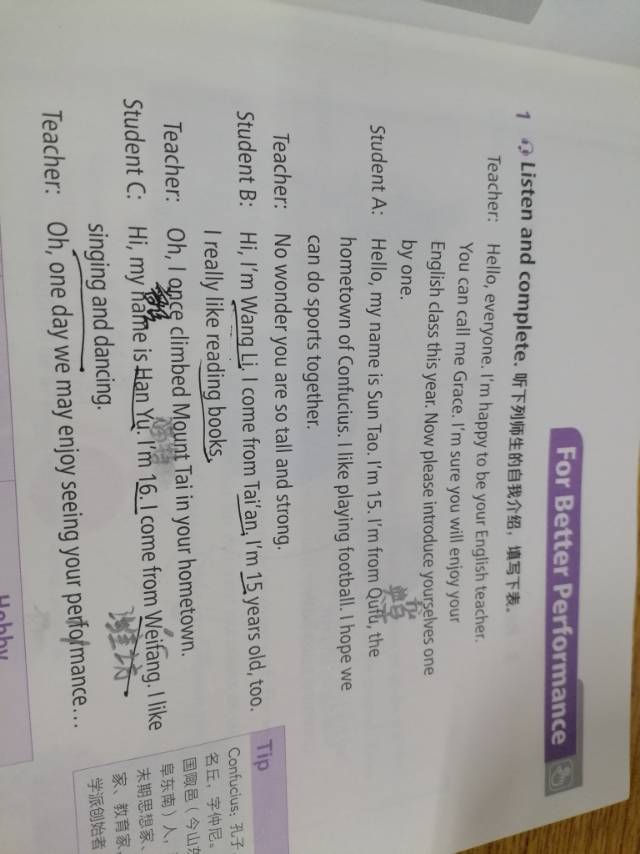 For Better Performance
1 Listen and complete. 听下列师生的自我介绍，填写下表。
Teacher: Hello, everyone. I'm happy to be your English teacher.
You can call me Grace. I'm sure you will enjoy your
English class this year. Now please introduce yourselves one
by one.
Student A: Hello, my name is Sun Tao. I'm 15. I'm from Qufu, the
hometown of Confucius. I like playing football. I hope we
can do sports together.
Teacher: No wonder you are so tall and strong.
Student B: Hi, I'm Wang Li. I come from Tai'an, I'm 15 years old, too.
I really like reading books.
Teacher: Oh, I once climbed Mount Tai in your hometown.
Student C: Hi, my name is Han Yu. I'm 16. I come from Weifang. I like
singing and dancing.
Teacher: Oh, one day we may enjoy seeing your performance…
Tip
Confucius: 孔子
名丘，字仲尼。
国陬邑（今山东
阜东南）人，
末期思想家、
家、教育家，
学派创始者
Hobby